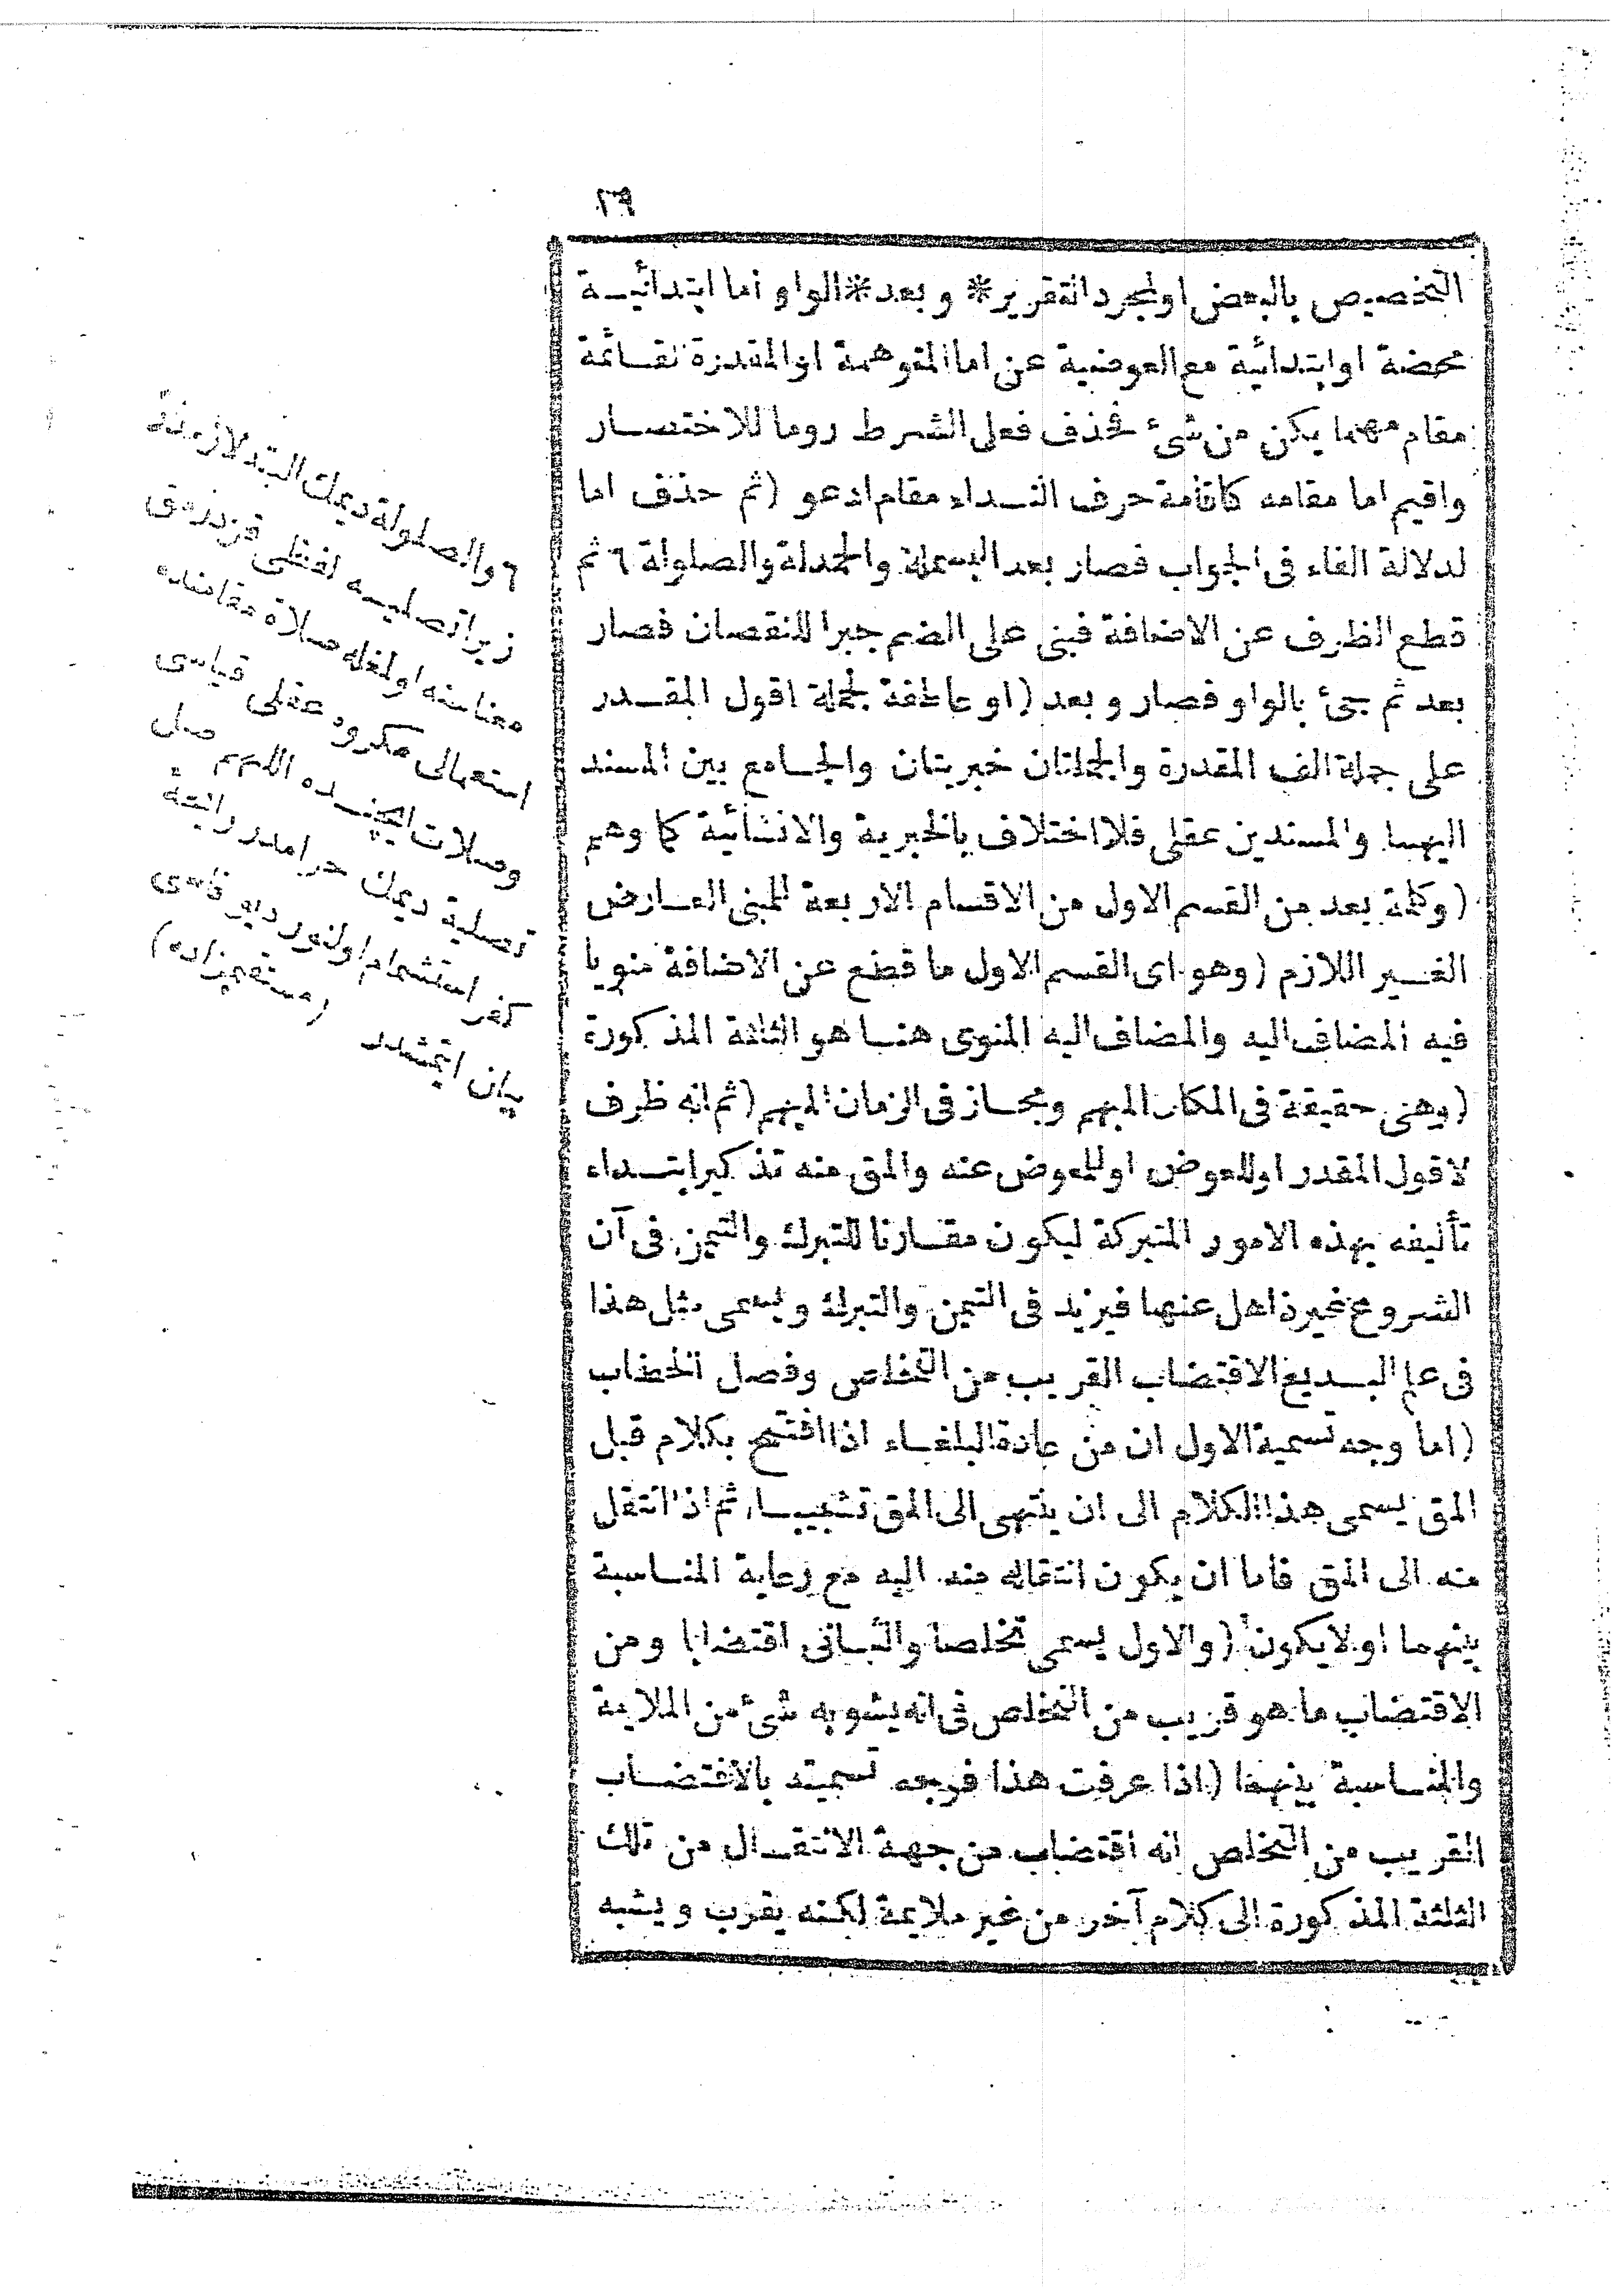 ٢٩
التخصيص بالبعض او لمجرد التقرير * و بعد * الواو اما ابتدائيــة
محضة او ابتدائية مع العوضية عن اما المتوهمة او المقدرة لقــائمة
مقام مهما يكن من شئ فحذف فعل الشرط روما للاختصــار
واقيم اما مقامه كاقامة حرف النــداء مقام ادعو (ثم حذف اما
لدلالة الفاء فى الجواب فصار بعد البسملة والحمدلة والصلولة ٦ ثم
قطع الظرف عن الاضافة فبنى على الضم جبرا للنقصان فصار
بعد ثم جئ بالواو فصار و بعد (او عاطفة لجملة اقول المقــدر
على جملة الف المقدرة والجملتان خبريتان والجــامع بين المسند
اليهما والمسندين عقلى فلا اختلاف بالخبرية والانشائية كما وهم
(وكلمة بعد من القسم الاول من الاقسام الاربعة للمبنى العــارض
الغــير اللازم (وهو اى القسم الاول ما قطع عن الاضافة منويا
فيه المضاف اليه والمضاف اليه المنوى هنــا هو الثلثة المذكورة
(وهى حقيقة فى المكان المبهم ومجــاز فى الزمان المبهم (ثم انه ظرف
لاقول المقدر او للعوض او للمعوض عنه والمق منه تذكير ابتــداء
تأليفه بهذه الامور المتبركة ليكون مقــارنا للتبرك والتيمن فى آن
الشروع غير ذاهل عنها فيزيد فى التيمن والتبرك و يسمى مثل هذا
فى علم البــديع الاقتضاب القريب من التخلص وفصل الخطاب
(اما وجه تسمية الاول ان من عادة البلغــاء اذا افتتح بكلام قبل
المق يسمى هذا الكلام الى ان ينتهى الى المق تشبيبــا ثم اذا انتقل
منه الى المق فاما ان يكون انتقاله منه اليه مع رعاية المنــاسبة
بينهما او لا يكون (والاول يسمى تخلصا والثــانى اقتضابا ومن
الاقتضاب ما هو قريب من التخلص فى انه يشوبه شئ من الملايمة
والمنــاسبة بينهما (اذا عرفت هذا فوجه تسميته بالاقتضــاب
القريب من التخلص انه اقتضاب من جهة الانتقــال من تلك
الثلثة المذكورة الى كلام آخر من غير ملايمة لكنه يقرب و يشبه
٦ والصلولة ديمك البتد لازمدر
زيرا تصليه لفظى
معناسنه اولمغله صلاة مقامنده
استعمالى مكروه عقلى قياسى
اللهم صل
تصلية ديمك
كفر استشمام اولنور ديو
بيان ايتمشدر